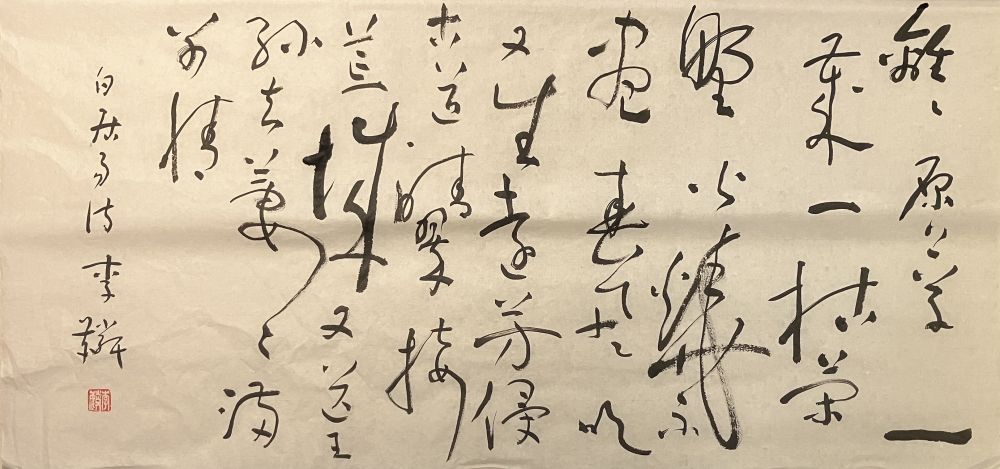 離〻原上草一
歲一枯榮
野火燒不
盡春風吹
又生遠芳侵
古道晴翠接
荒城又送王
孫去萋〻滿
別情
白居易诗 李